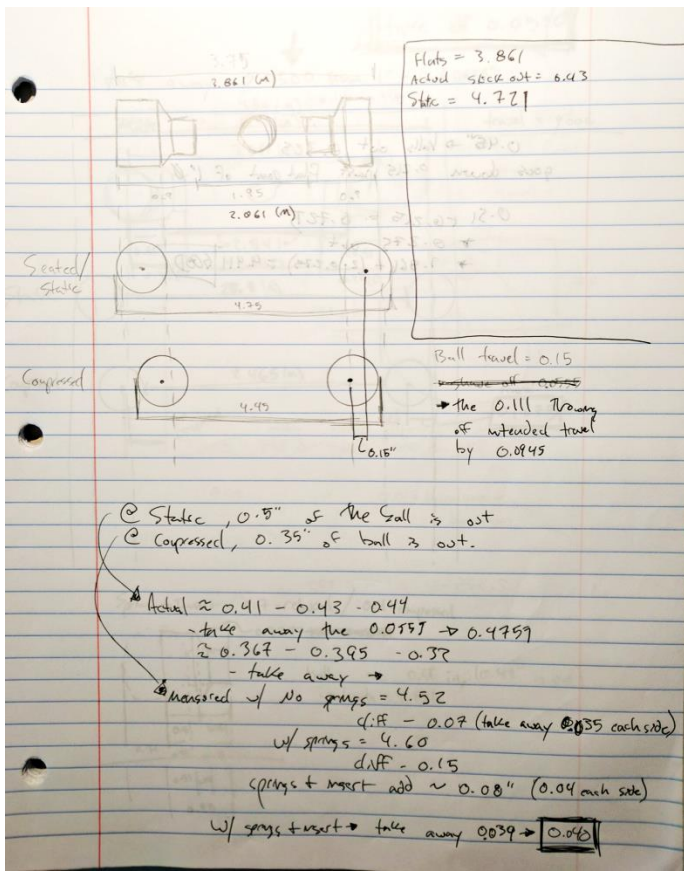 3.75
3.861 (m)
Flats = 3.861
Actual stick out = 0.43
Static = 4.721
1.95
2.061 (m)
Seated/
Static
4.75
Compressed
4.45
0.15"
Ball travel = 0.15
→ the 0.111 Throwing
off intended travel
by 0.0945
@ Static, 0.5" of the ball is out
@ Compressed, 0.35" of ball is out.
Actual ≈ 0.41 - 0.43 - 0.44
- take away the 0.0555 → 0.4759
≈ 0.367 - 0.395 - 0.32
- take away →
Measured w/ No springs = 4.52
diff - 0.07 (take away 0.035 each side)
w/ springs = 4.60
diff - 0.15
springs + insert add ~ 0.08" (0.04 each side)
w/ springs + insert → take away 0.039 → 0.040